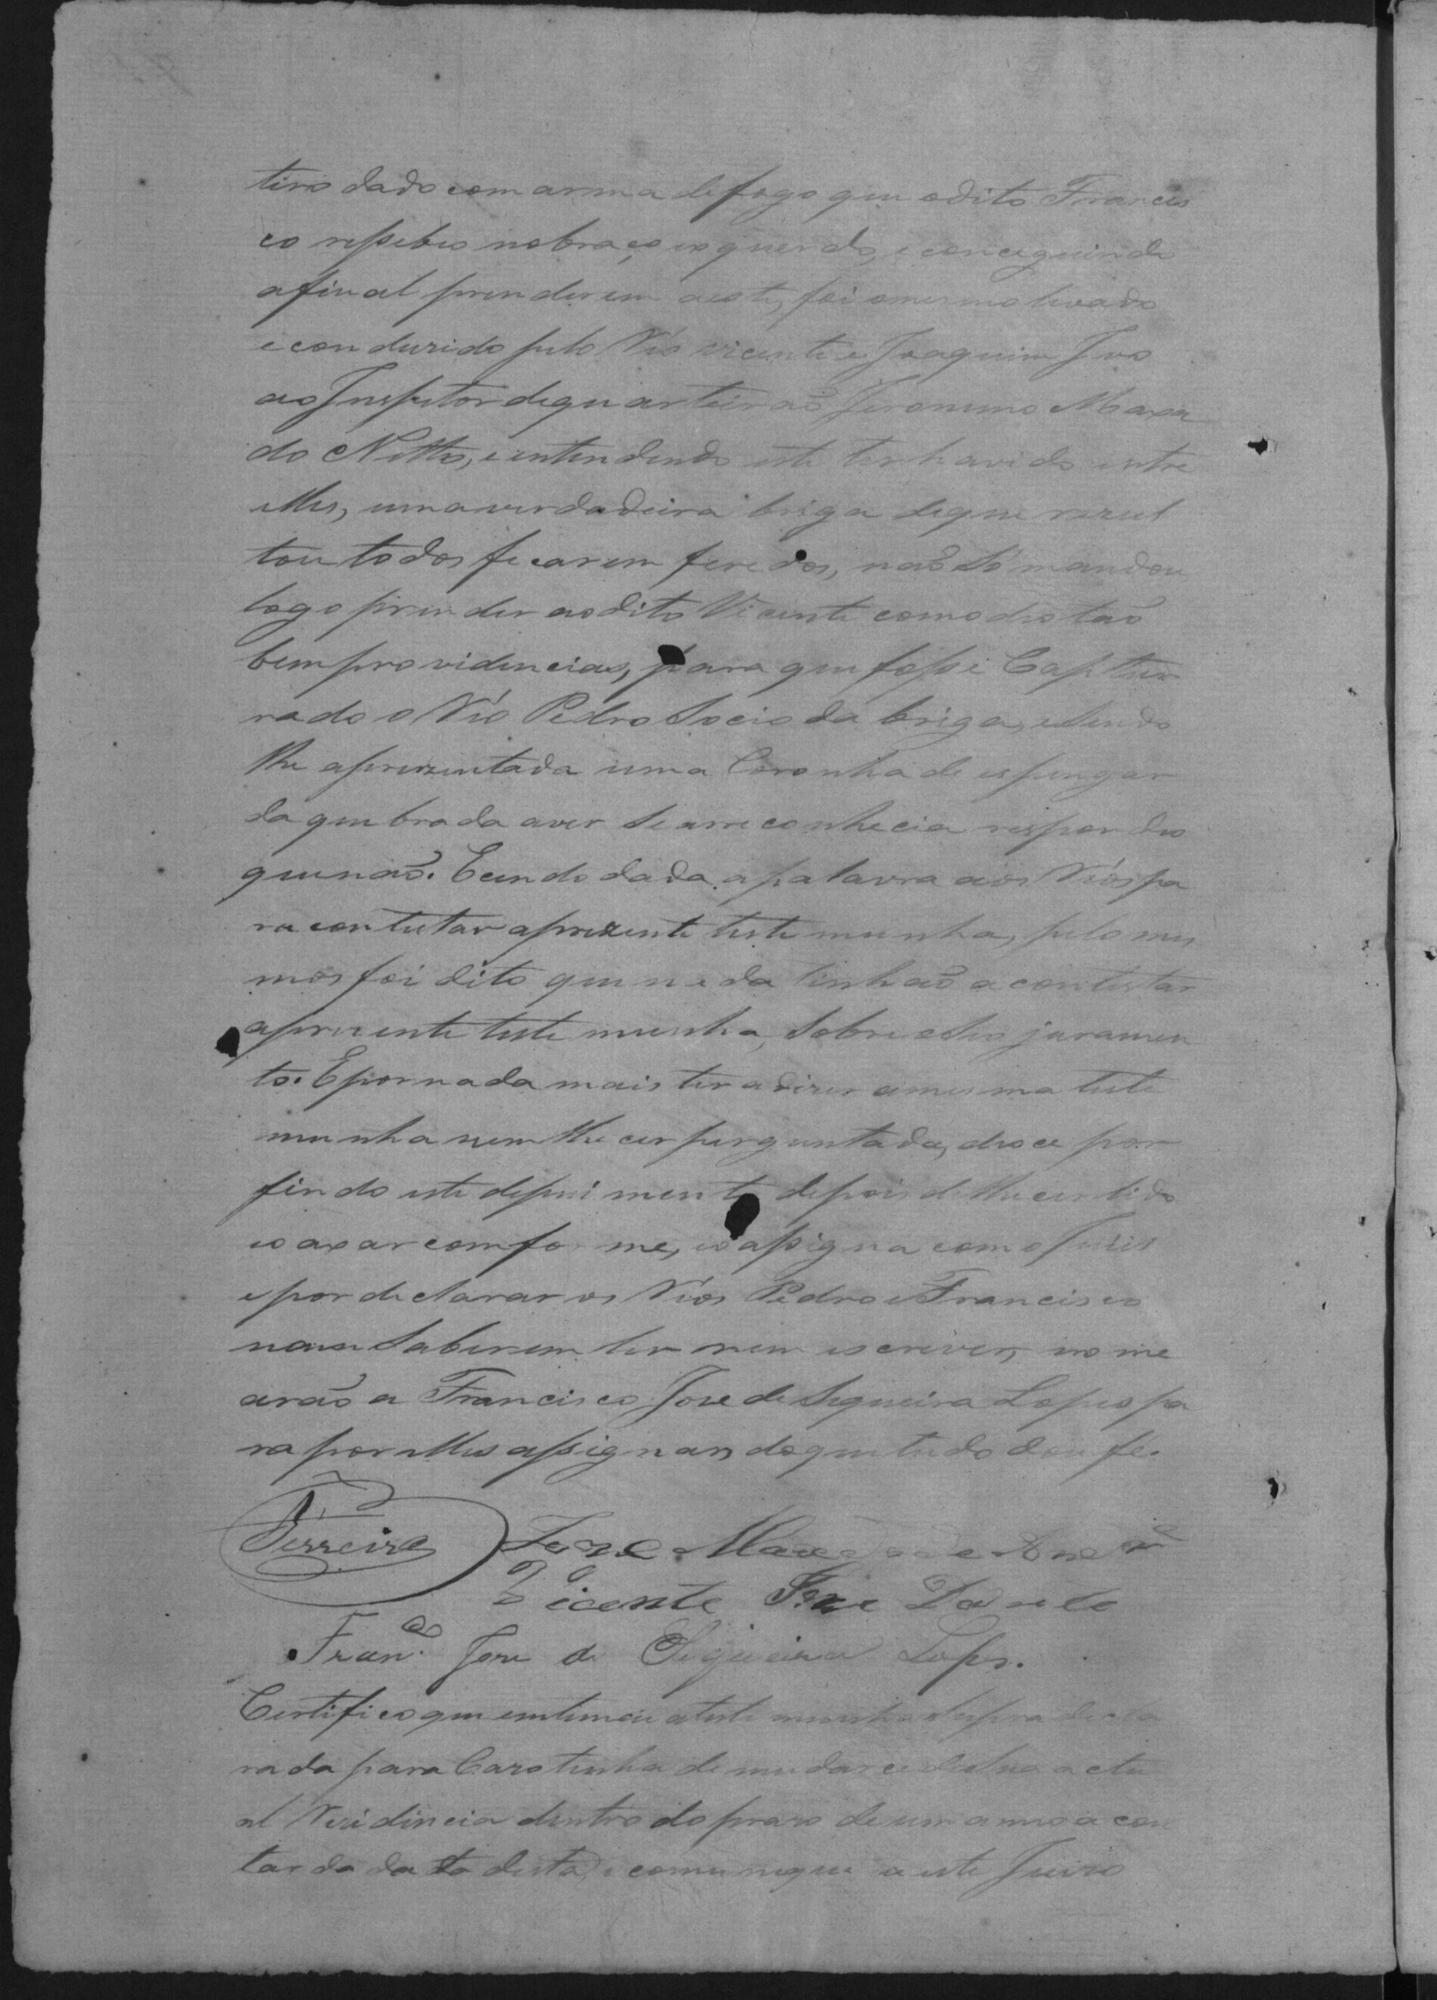 tiro dado com arma de fogo que o dito Francis
co respebeo no braço esquerdo, e conceguindo
afinal prenderem a este, foi o mesmo levado
e condusido pelo Réo Vicente e Joaquim Ivo
ao Inspetor de quarteirão Jeronimo Maxa
do Netto, e entendendo este ter havido entre
elles, uma verdadeira briga de que rezul
tou todos ficarem feredos, não só mandou
logo prender ao dito Vicente como deo tão
bem providencias, para que fosse Captur
rado o Réo Pedro Socio da briga, e sendo
lhe aprezentada uma Coronha de espingar
da quebrada a ver se a reconhecia respondeo
que não. E sendo dada a palavra aos Réos pa
ra contestar a prezente testemunha, pelo mes
mos foi dito que nada tinhão a contestar
a prezente testemunha, sobre o seo juramen
to. E por nada mais ter a dizer a mesma teste
munha nem lhe cer perguntada, deo ce por
findo este depuimento depois de lhe cer lido
e o axar comforme, e o assigna com o Juiz
e por declarar os Réos Pedro e Francisco
não saberem ler nem escrever, nome
arão a Francisco Jose de Siqueira Lopes pa
ra por elles assignar, do que tudo dou fé.
Ferreira Joze Maxado de
Vicente Joze
Fran.co Jose de Siqueira Lopes.
Certifico que entimei a testemunha supra decla
rada para Cazo tenha de mudarce de sua actu
al Rezidencia dentro do prazo de um anno a con
tar da data desta, e comunique a este Juizo